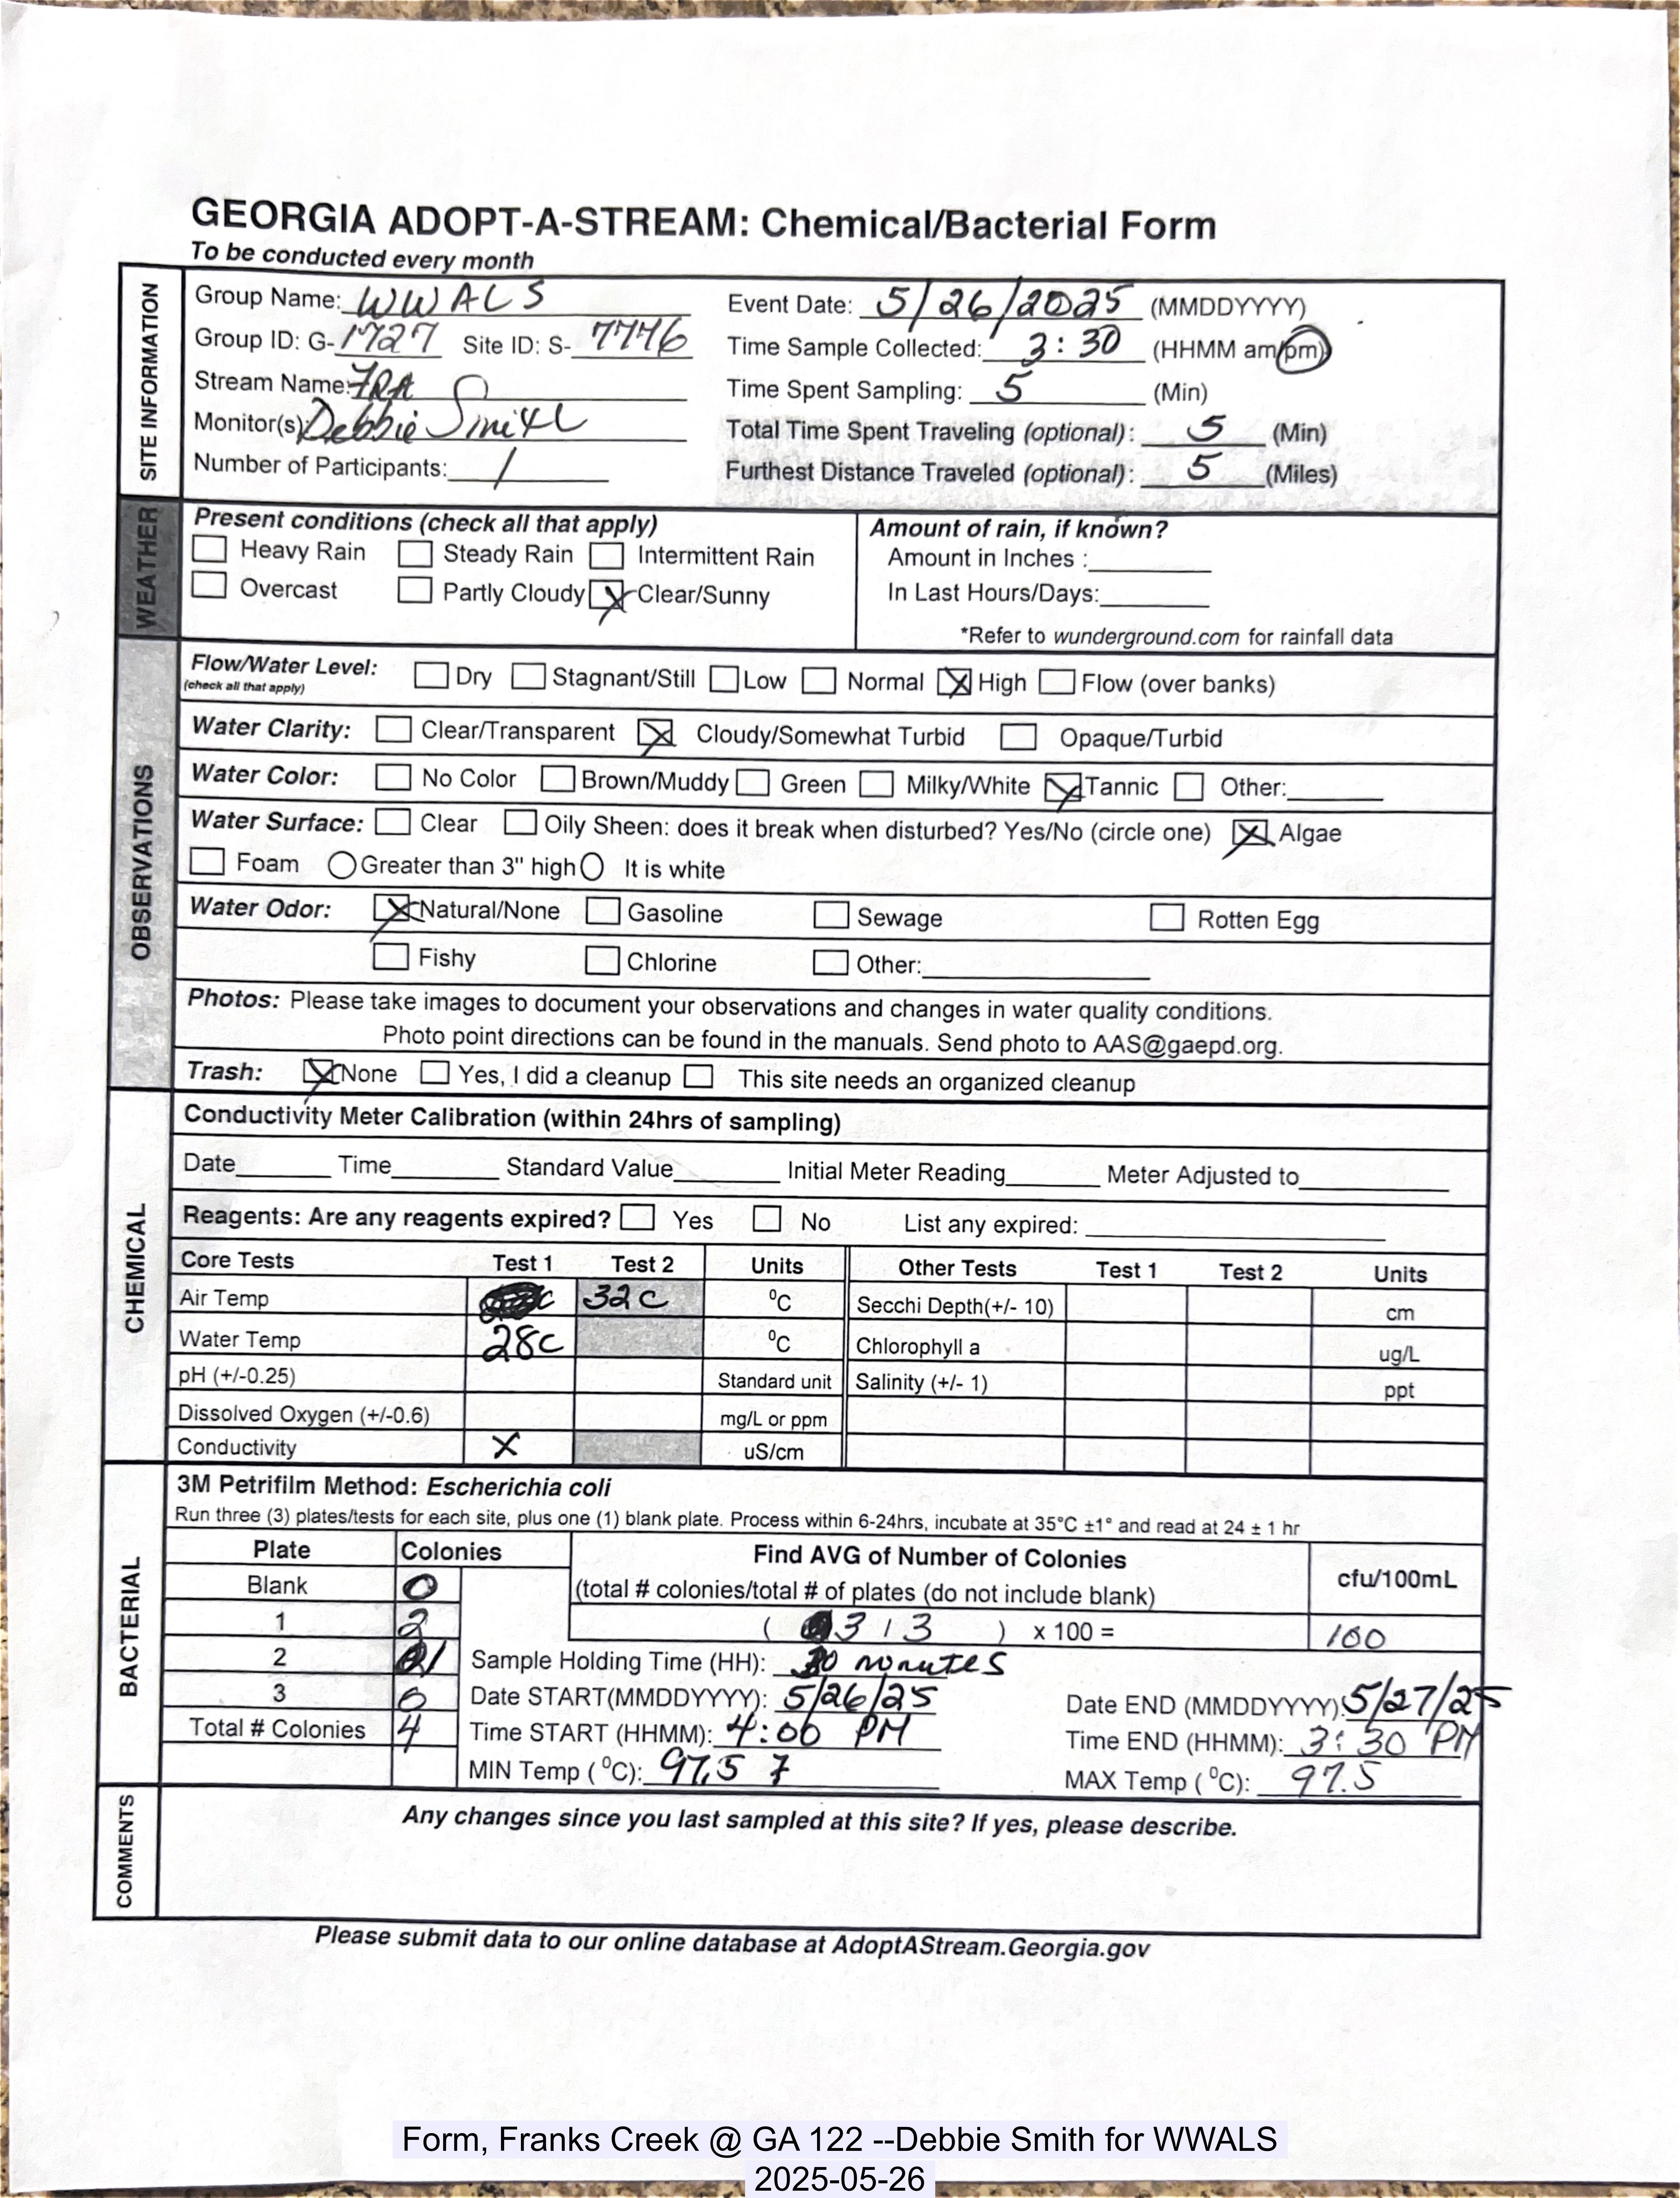 GEORGIA ADOPT-A-STREAM: Chemical/Bacterial Form
To be conducted every month
SITE INFORMATION
Group Name: WWALS
Event Date: 5/26/2025 (MMDDYYYY)
Group ID: G-1727 Site ID: S-7776
Time Sample Collected: 3:30 (HHMM am/pm)
Stream Name: FRA
Time Spent Sampling: 5 (Min)
Monitor(s) Debbie Smith
Total Time Spent Traveling (optional): 5 (Min)
Number of Participants: 1
Furthest Distance Traveled (optional): 5 (Miles)
WEATHER
Present conditions (check all that apply)
Heavy Rain Steady Rain Intermittent Rain
Overcast Partly Cloudy X Clear/Sunny
Amount of rain, if known?
Amount in Inches :
In Last Hours/Days:
*Refer to wunderground.com for rainfall data
OBSERVATIONS
Flow/Water Level: Dry Stagnant/Still Low Normal X High Flow (over banks)
(check all that apply)
Water Clarity: Clear/Transparent X Cloudy/Somewhat Turbid Opaque/Turbid
Water Color: No Color Brown/Muddy Green Milky/White X Tannic Other:
Water Surface: Clear Oily Sheen: does it break when disturbed? Yes/No (circle one) X Algae
Foam Greater than 3" high It is white
Water Odor: X Natural/None Gasoline Sewage Rotten Egg
Fishy Chlorine Other:
Photos: Please take images to document your observations and changes in water quality conditions.
Photo point directions can be found in the manuals. Send photo to AAS@gaepd.org.
Trash: X None Yes, I did a cleanup This site needs an organized cleanup
CHEMICAL
Conductivity Meter Calibration (within 24hrs of sampling)
Date Time Standard Value Initial Meter Reading Meter Adjusted to
Reagents: Are any reagents expired? Yes No List any expired:
Core Tests Test 1 Test 2 Units Other Tests Test 1 Test 2 Units
Air Temp 32c ⁰C Secchi Depth(+/- 10) cm
Water Temp 28c ⁰C Chlorophyll a ug/L
pH (+/-0.25) Standard unit Salinity (+/- 1) ppt
Dissolved Oxygen (+/-0.6) mg/L or ppm
Conductivity X uS/cm
BACTERIAL
3M Petrifilm Method: Escherichia coli
Run three (3) plates/tests for each site, plus one (1) blank plate. Process within 6-24hrs, incubate at 35°C ±1° and read at 24 ± 1 hr
Plate Colonies Find AVG of Number of Colonies cfu/100mL
Blank 0 (total # colonies/total # of plates (do not include blank)
1 2 ( 3 / 3 ) x 100 = 100
2 1 Sample Holding Time (HH):
3 0 Date START(MMDDYYYY): 5/26/25 Date END (MMDDYYYY): 5/27/25
Total # Colonies 4 Time START (HHMM): 4:00 PM Time END (HHMM): 3:30 PM
MIN Temp (⁰C): 97.5 F MAX Temp (⁰C): 97.5
COMMENTS
Any changes since you last sampled at this site? If yes, please describe.
Please submit data to our online database at AdoptAStream.Georgia.gov
Form, Franks Creek @ GA 122 --Debbie Smith for WWALS
2025-05-26